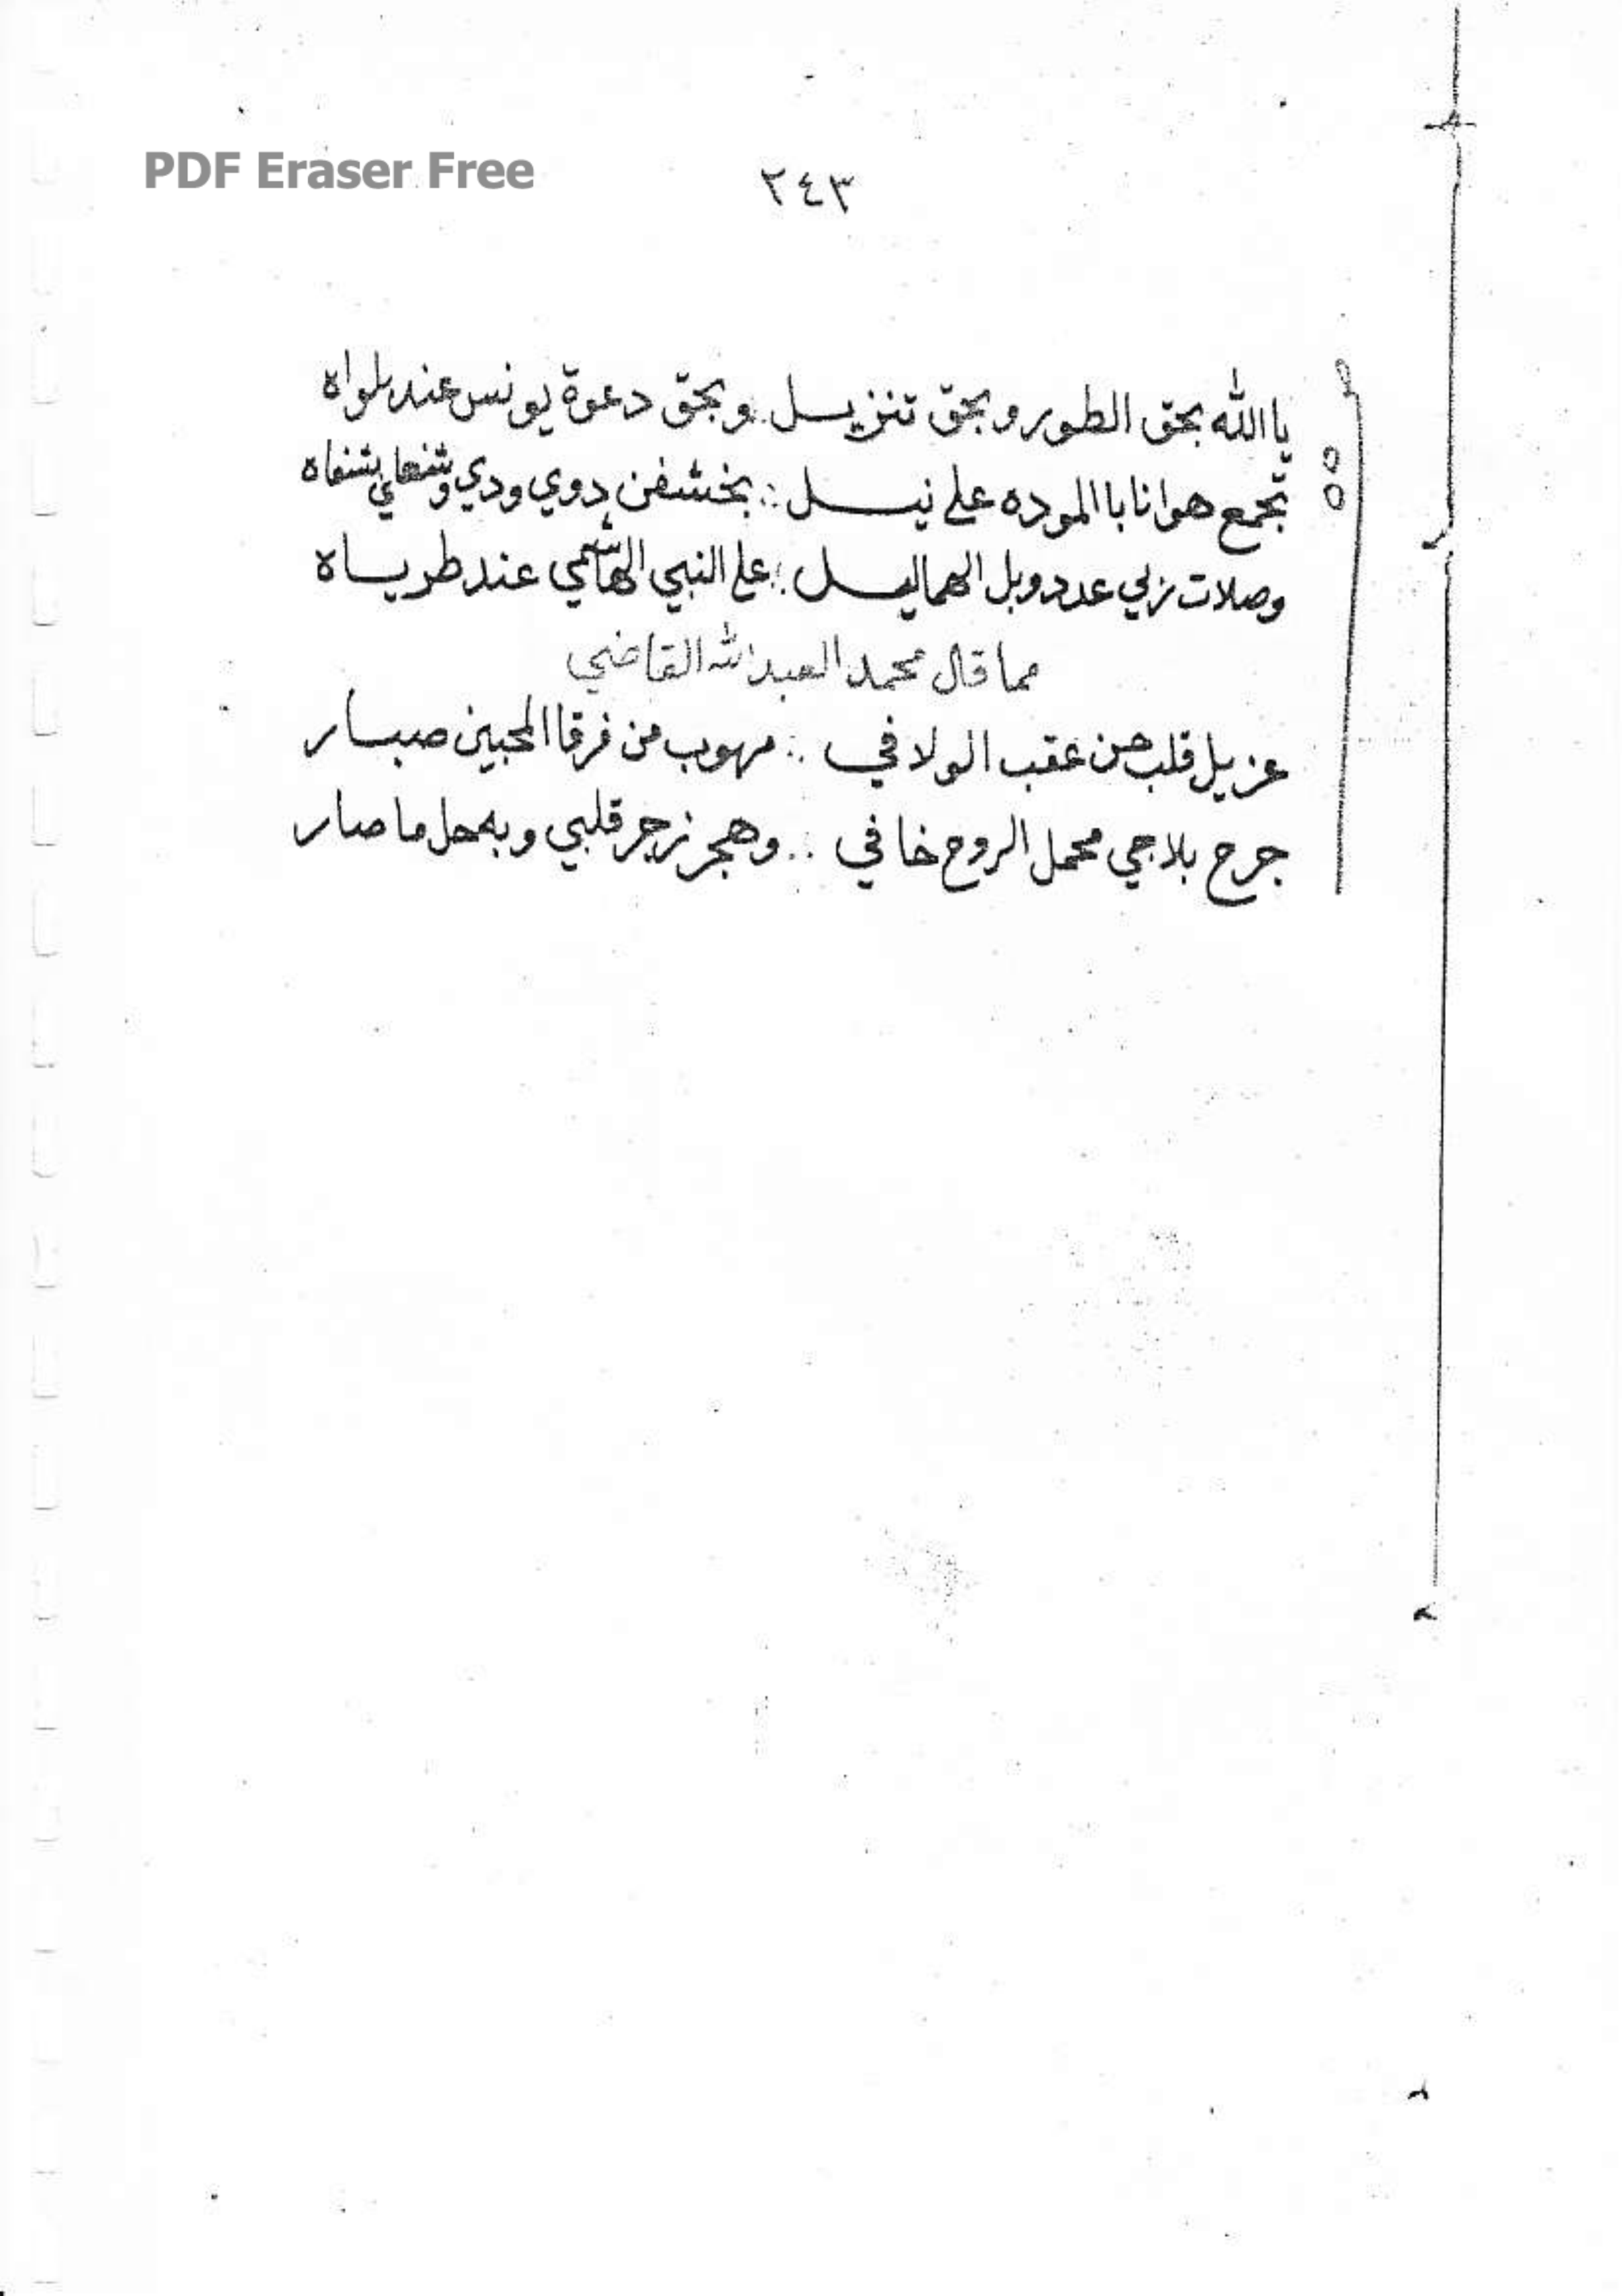 PDF Eraser Free
٢٤٣
يا الله بحق الطور وبحق تنزيل .. وبحق دعوة يونس عند بلواه
تجمع هوانا بالموده على نيل .. دوي ودي
وصلات ربي عدد وبل الهماليل .. على النبي الهاشمي عند طرياه
مما قال محمد العبد الله القاضي
عزيل قلب حن عقب الولافي .. مهوب من فرقا المحبين صبار
جرح بلاجي محمل الروح خافي .. وهجر زجر قلبي وبه حل ما صار